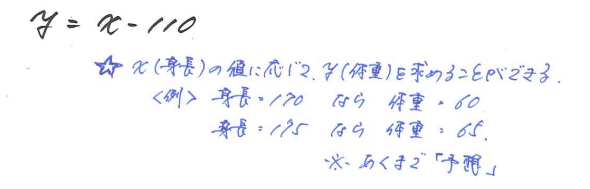 y = x - 110
☆ x(身長)の値に応じて、y(体重)を求めることができる.
<例> 身長=170 なら 体重=60
身長=175 なら 体重=65.
※ あくまで「予想」